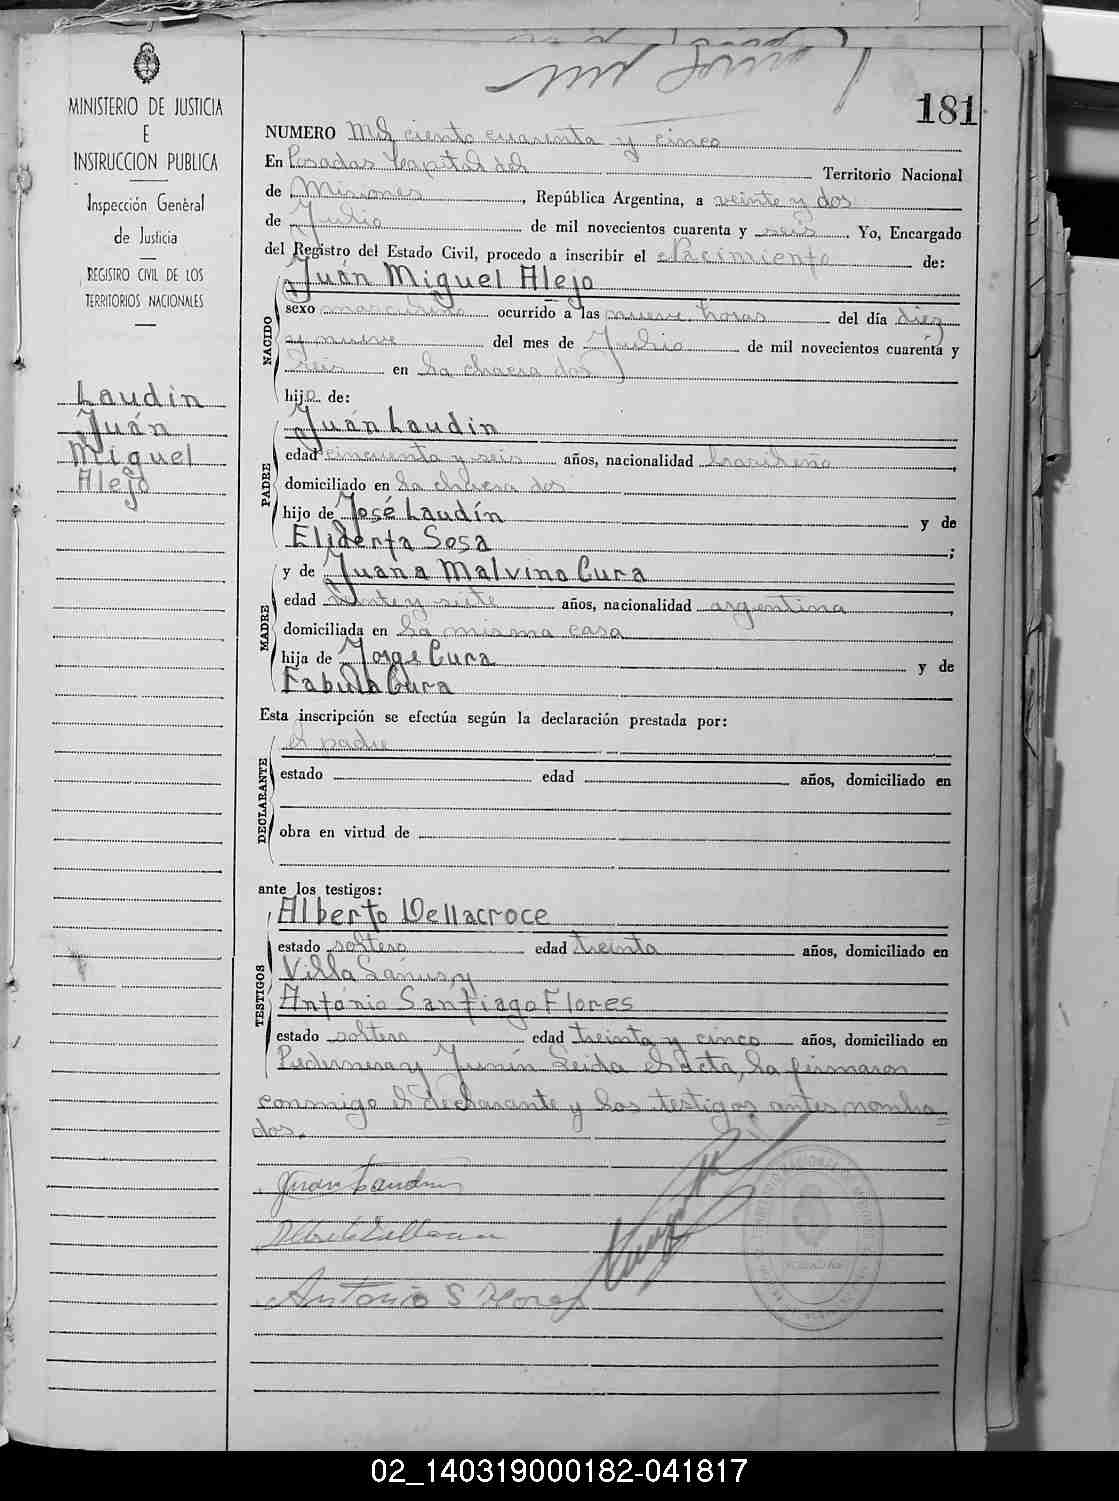 181
MINISTERIO DE JUSTICIA
E
INSTRUCCION PUBLICA
Inspección General
de Justicia
REGISTRO CIVIL DE LOS
TERRITORIOS NACIONALES
Laudin
Juán
Miguel
Alejo
NUMERO Mil ciento cuarenta y cinco
En Posadas Capital del Territorio Nacional
de Misiones, República Argentina, a veinte y dos
de Julio de mil novecientos cuarenta y seis. Yo, Encargado
del Registro del Estado Civil, procedo a inscribir el Nacimiento de:
Juán Miguel Alejo
NACIDO
sexo masculino ocurrido a las nueve horas del día diez
y nueve del mes de Julio de mil novecientos cuarenta y
seis en la chacra dos
hijo de:
Juán Laudin
PADRE
edad cincuenta y seis años, nacionalidad brasileña
domiciliado en la chacra dos
hijo de José Laudín y de
Eliderta Sosa;
y de Juana Malvina Cura
MADRE
edad veinte y siete años, nacionalidad argentina
domiciliada en la misma casa
hija de Jorge Cura y de
Fabula Cura
Esta inscripción se efectúa según la declaración prestada por:
el padre
DECLARANTE
estado edad años, domiciliado en
obra en virtud de
ante los testigos:
Alberto Dellacroce
TESTIGOS
estado soltero edad treinta años, domiciliado en
Villa Lanus y
Antonio Santiago Flores
estado soltero edad treinta y cinco años, domiciliado en
Pedernera y Junín Leida el acta, la firmaron
conmigo el declarante y los testigos antes nombra=
dos.
Juan Laudin
Antonio S Flores
02_140319000182-041817